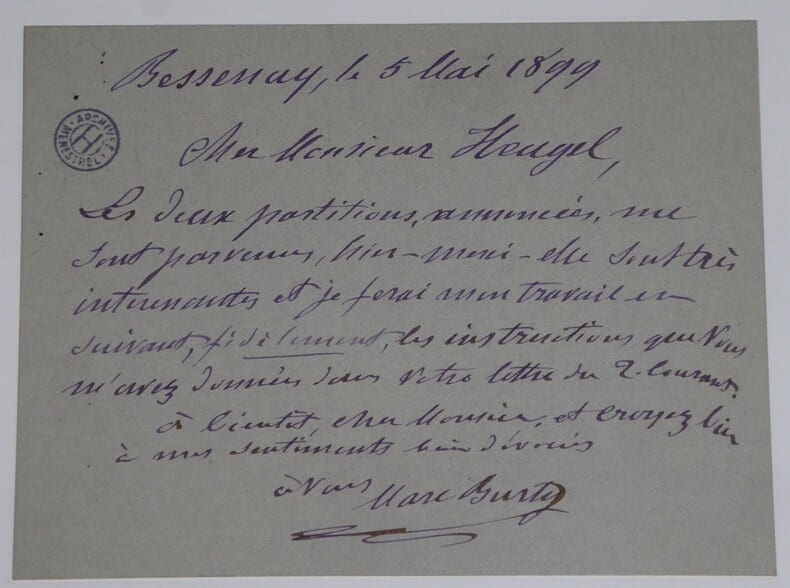 Bessenay, le 5 Mai 1899
ARCHIVES MENESTREL
H
Cher Monsieur Heugel,
Les deux partitions, annoncées, me
sont parvenues, hier - merci - elle sont très
interessantes et je ferai mon travail en
suivant, fidèlement, les instructions que Vous
m'avez données dans votre lettre du 2 Courant.
à bientôt, cher Monsieur, et croyez bien
à mes sentiments bien dévoués
à Vous
Marc Burty